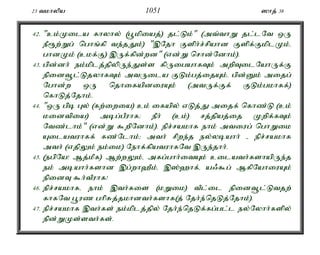 23 வமாலிய 1051 ஸாத் 38
42. "உம்முடைய காலால் (பூமியைத்) தட்டும்" (அவ்வாறு தட்டவே ஒரு நீரூற்றுப் பொங்கி வந்ததும்) "இதோ குளிர்ச்சியான குளிக்குமிடமும், பானமும் (உமக்கு) இருக்கின்றன" (என்று சொன்னோம்).
43. பின்னர் நம்மிடத்திலிருந்துள்ள கிருபையாகவும் அறிவுடையோருக்கு நினைவூட்டுதலாகவும் அவருடைய குடும்பத்தையும், பின்னும் அதைப் போன்ற ஒரு தொகையினரையும் (அவருக்குக் குடும்பமாகக்) கொடுத்தோம்.
44. "ஒரு பிடி புல் (கற்றையை) உம் கையில் எடுத்து அதைக் கொண்டு (உம் மனைவியை) அடிப்பீராக; நீர் (உம்) சத்தியத்தை முறிக்கவும் வேண்டாம்" (என்று கூறினோம்). நிச்சயமாக நாம் அவரைப் பொறுமை யுடையவராகக் கண்டோம்; அவர் சிறந்த நல்லடியார் - நிச்சயமாக அவர் (எதிலும் நம்மை) நோக்கியவராகவே இருந்தார்.
45. (நபியே! ஆத்மீக) ஆற்றலும், அகப்பார்வையும் உடையவர்களாயிருந்த நம் அடியார்களான இப்றாஹீம், இஸ்ஹாக், யஃகூப் ஆகியோரையும் நினைவு கூர்வீராக!
46. நிச்சயமாக, நாம் இவர்களை (மறுமை) வீட்டை நினைவூட்டுவதற் காகவே பூரண பரிசுத்தமானவர்களாக(த் தேர்ந்தெடுத்தோம்).
47. நிச்சயமாக இவர்கள் நம்மிடத்தில் தேர்ந்தெடுக்கப்பட்ட நல்லோர்களில் நின்றுமுள்ளவர்கள்.